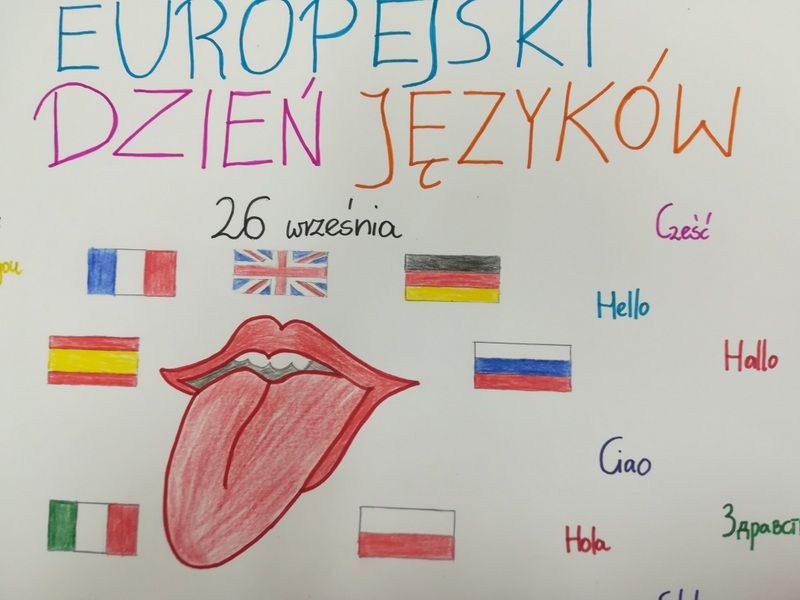 EUROPEJSKI
DZIEŃ JĘZYKÓW
26 września
Cześć
you
Hello
Hallo
Ciao
Hola
Здравст